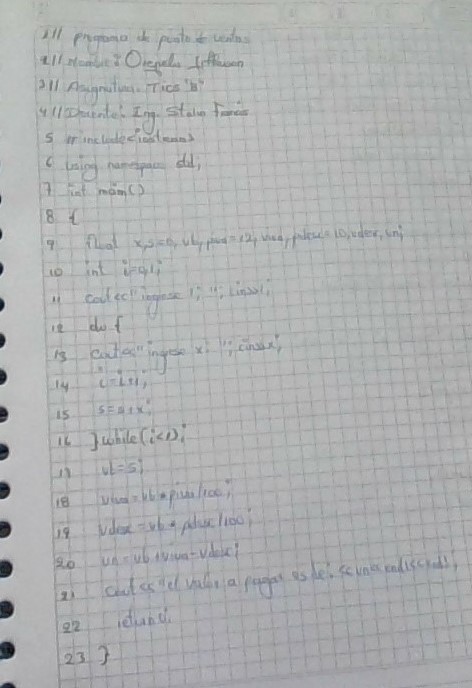 1 // programa de punto de ventas
2 // Nombre: Jefferson
3 // Asignatura: Tics "B"
4 // Docente: Ing. Stalin Francis
5 #include<iostream>
6 using namespace std;
7 int main()
8 {
9 float x, s=0, vb, piva=12, viva, pdesc=10, vdesc, vn;
10 int i=0, l;
11 cout<<"ingrese l; "; cin>>l;
12 do {
13 cout<<"ingrese x: "; cin>>x;
14 i=i+1;
15 s=s+x;
16 } while(i<l);
17 vb=s;
18 viva=vb*piva/100;
19 vdesc=vb*pdesc/100;
20 vn=vb+viva-vdesc;
21 cout<<"el valor a pagar es de:
22 return
23 }